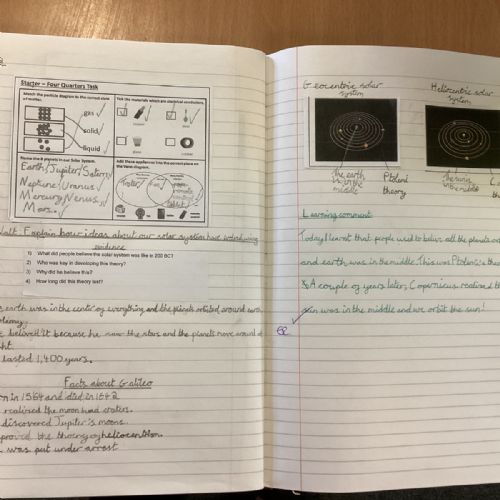 Starter – Four Quarters Task
Match the particle diagram to the correct state of matter.
gas
solid
liquid
Tick the materials which are electrical conductors.
Name the 8 planets in our Solar System.
Earth/Jupiter/Saturn/
Neptune/Uranus/
Mercury/Venus/
Mars.
Add these appliances into the correct place on the Venn diagram.
Walt: Explain how ideas about our solar system have
evidence
1) What did people believe the solar system was like in 200 BC?
2) Who was key in developing this theory?
3) Why did he believe this?
4) How long did this theory last?
earth was in the center of everything and the planets orbited around earth.
believed it because he saw the stars and the planets move around at
ght.
lasted 1,400 years.
Facts about Galileo
rn in 1564 and died in 1642
realised the moon had craters.
discovered Jupiter's moons.
proved the theory of heliocentrism.
was put under arrest
Geocentric solar system
The earth was in the middle
Ptolemy theory
Heliocentric solar system
The sun in the middle
Learning comment
Today I learnt that people used to believe all the planets
and earth was in the middle. This was Ptolemy's
A couple of years later, Copernicus realised
sun was in the middle and we orbit the sun!